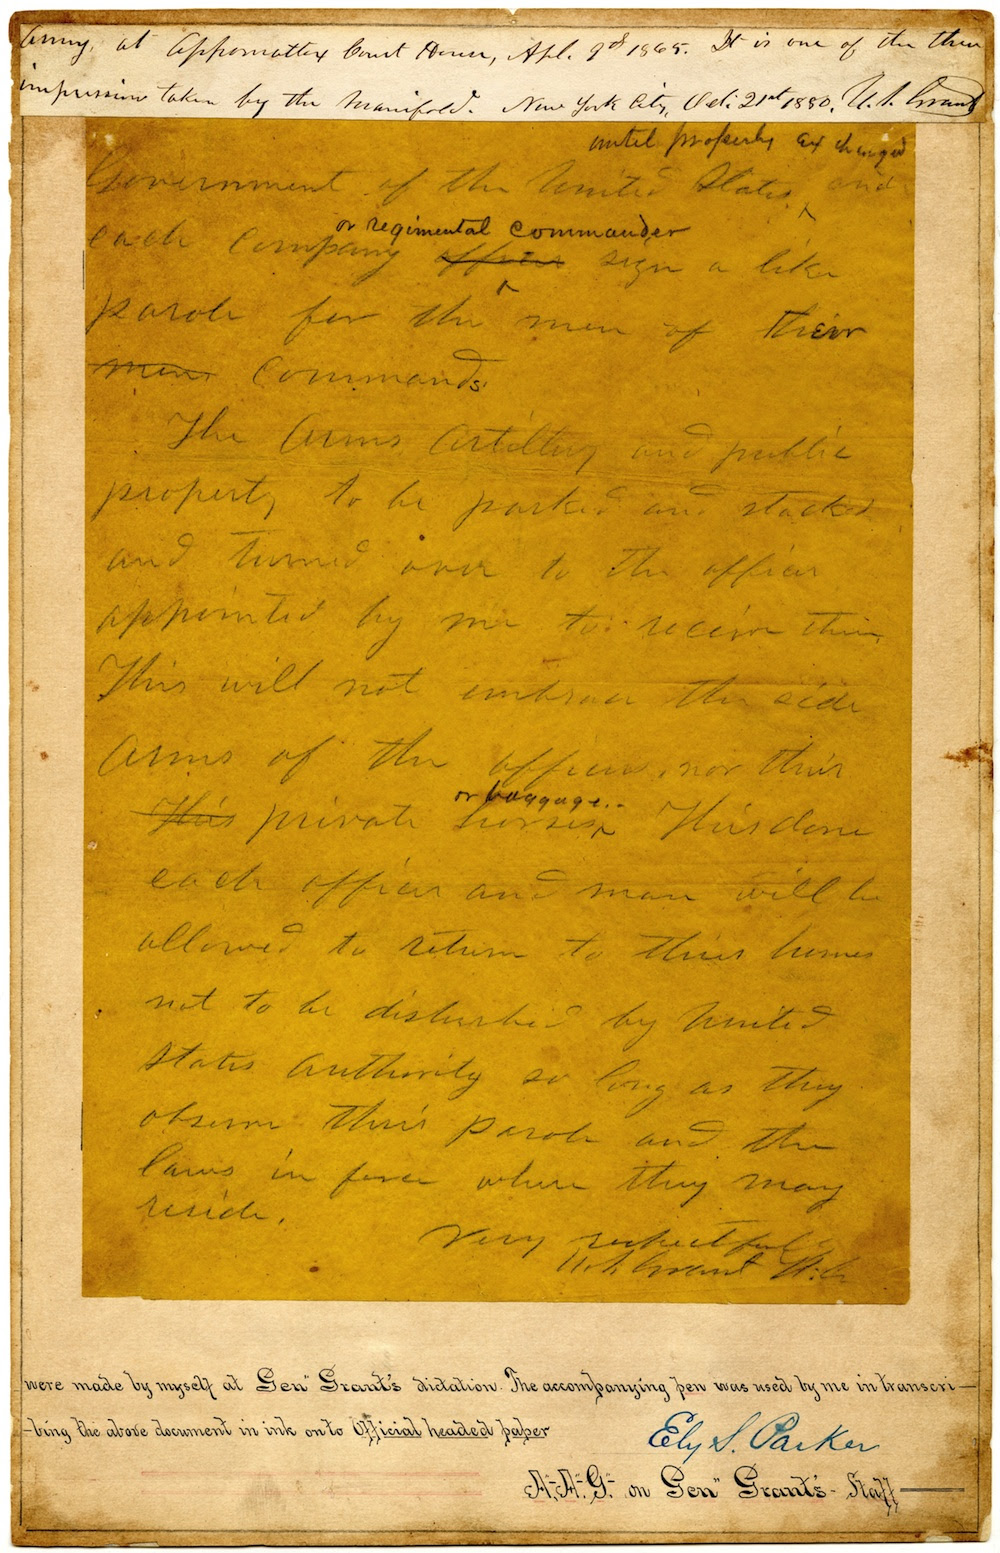 Army, at Appomattox Court House, Apl. 9th 1865. It is one of the three
impressions taken by the Manifold. New York City, Oct. 21st 1880. U. S. Grant
until properly exchanged
Government of the United States and
or regimental commander
each company officer sign a like
parole for the men of their
men commands
The Arms, Artillery and public
property to be parked and stacked
and turned over to the officer
appointed by me to receive them
This will not embrace the side
Arms of the officers, nor their
or baggage.
This private horses This done
each officer and man will be
allowed to return to their homes
not to be disturbed by United
States Authority so long as they
observe their parole and the
laws in force where they may
reside.
Very respectfully
U. S. Grant Lt. Gn
were made by myself at Gen" Grant's dictation. The accompanying pen was used by me in transcri-
-bing the above document in ink onto Official headed paper
Ely S. Parker
A. A. G. on Gen" Grant's Staff